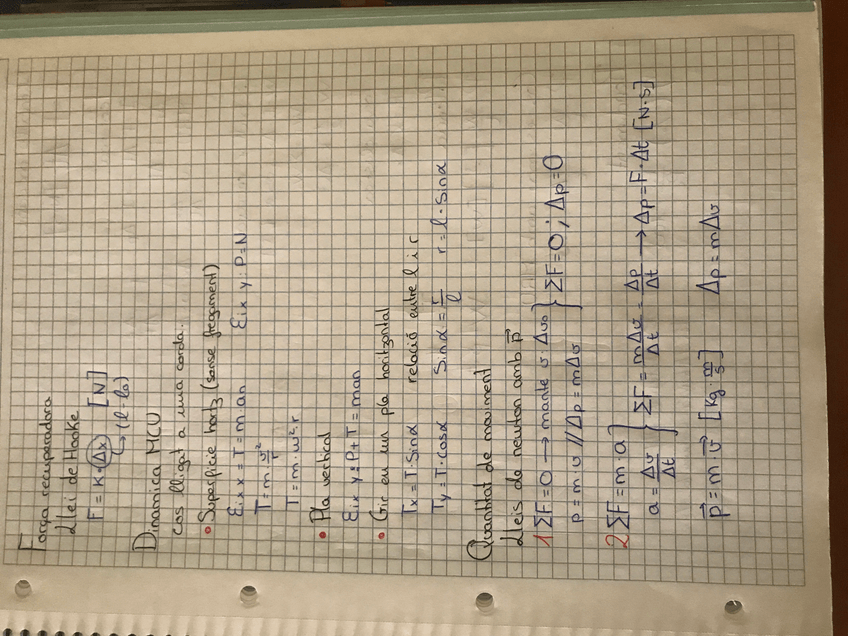 Força recuperadora
Llei de Hooke
F = K · Δx [N]
(l - l₀)
Dinamica MCU
cos lligat a una corda...
• Superficie horitz (sense fregament)
Eix x = T = m · an Eix y: P = N
T = m · v²/r
T = m · ω² · r
• Pla vertical
Eix y: P + T = man
• Gir en un pla horitzontal
Tx = T · Sinα relació entre l i r
Ty = T · cosα Sinα = r/l r = l · Sinα
Quantitat de moviment
Lleis de newton amb p⃗
1 ΣF = 0 → mante v Δv₀ } ΣF = 0 ; Δp = 0
p = m · v // Δp = mΔv
2 ΣF = m · a } ΣF = mΔv/Δt = Δp/Δt → Δp = F · Δt [N·s]
a = Δv/Δt
p⃗ = m · v⃗ [Kg · m/s] Δp = mΔv